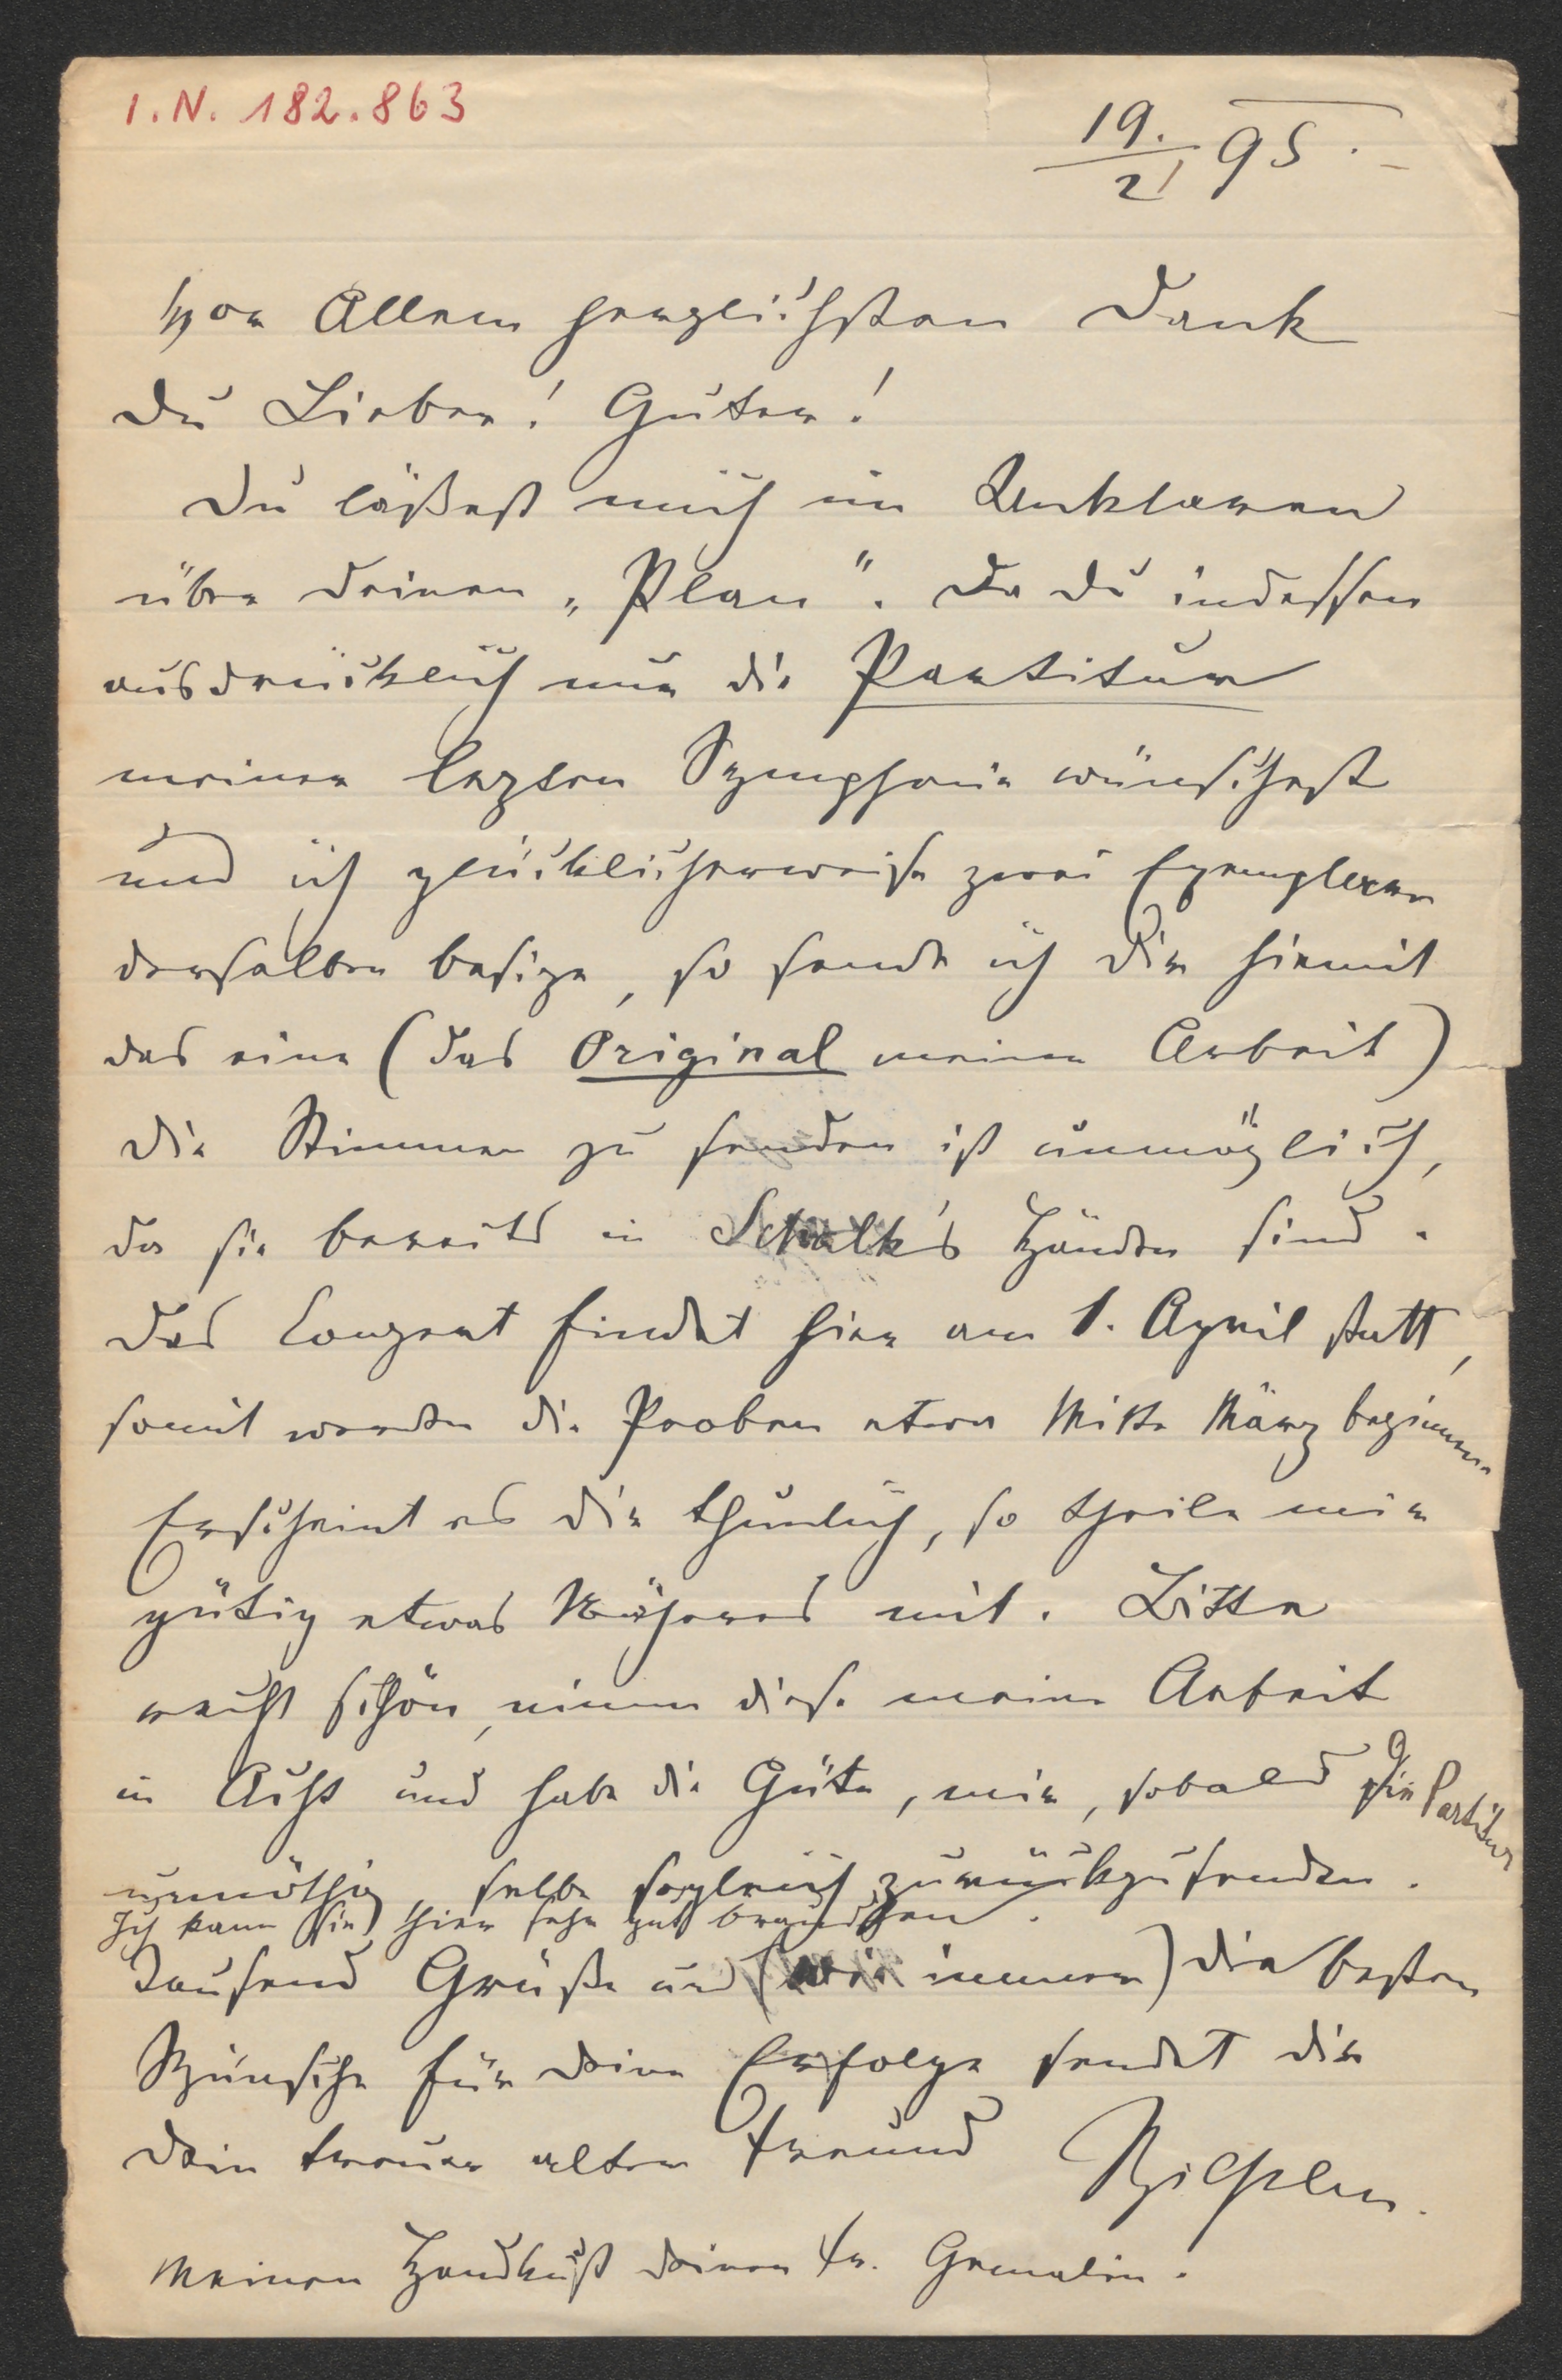 I.N. 182.863
19./2 95.
Vor Allem herzlichsten Dank
Du Lieber! Guter!
Du läßest mich im Unklaren
über deinen „Plan". Da du indessen
ausdrücklich nur die Partitur
meiner lezten Symphonie wünschest
und ich glücklicherweise zwei Exemplare
derselben besize, so sende ich Dir hiemit
das eine (das Original meiner Arbeit)
Die Stimmen zu senden ist unmöglich,
da sie bereits in Schalk's Händen sind.
Das Conzert findet hier am 1. April statt,
somit werden die Proben etwa Mitte März beginnen
Erscheint es dir thunlich, so theile mir
gütig etwas Näheres mit. Bitte
recht schön, nimm diese meine Arbeit
in Acht und habe die Güte, mir, sobald die Partitur
unnöthig, selbe sogleich zurückzusenden.
Ich kann sie hier sehr gut brauchen.
Tausend Grüße und (wie immer) die besten
Wünsche für deine Erfolge sendet dir
dein treuer alter Freund
Meinen Handkuß deiner Fr. Gemalin.